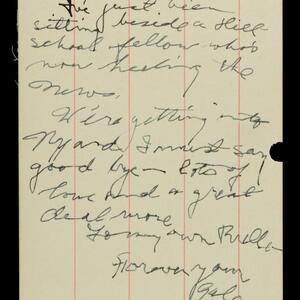 I've just been
sitting beside a Hill
school fellow who's
now heeling the
News.
We're getting into
Nyack I must say
good bye - lots of
love and a great
deal more
To my own
Forever your